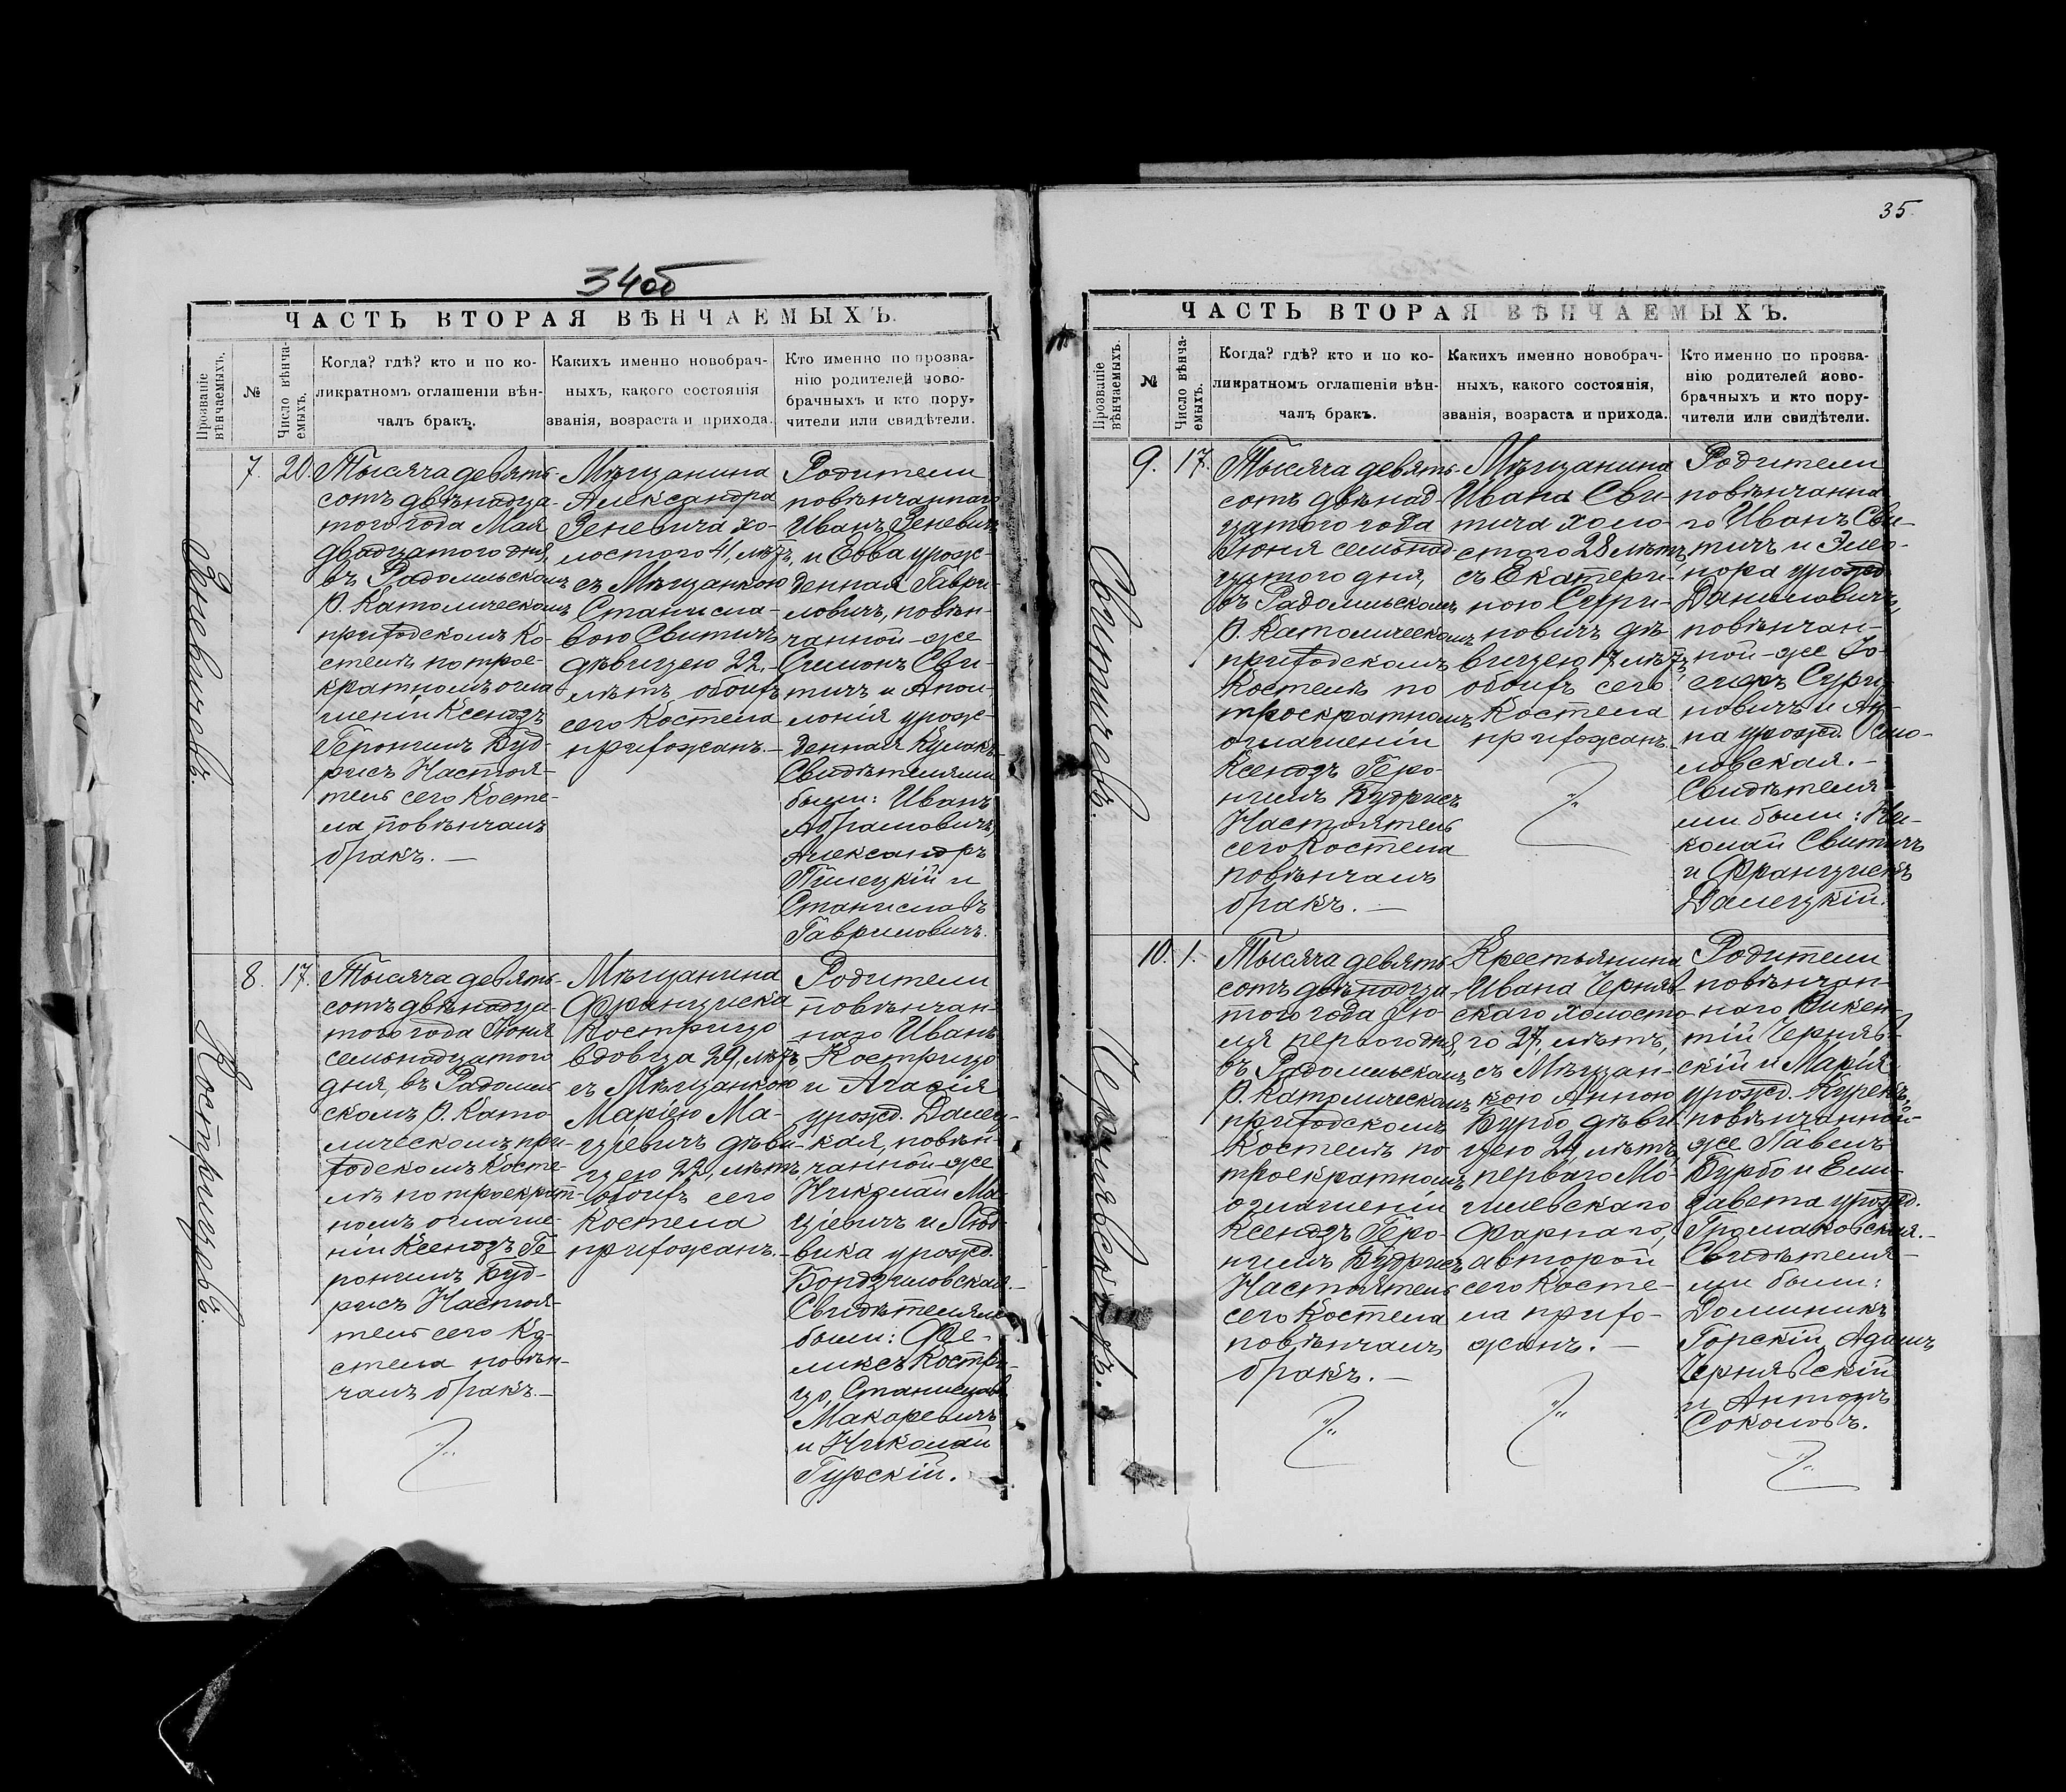 34об
ЧАСТЬ ВТОРАЯ ВѢНЧАЕМЫХЪ.
Прозваніе вѣнчаемыхъ.
№
Число вѣнчаемыхъ.
Когда? гдѣ? кто и по ко-
ликратномъ оглашеніи вѣн-
чалъ бракъ.
Какихъ именно новобрач-
ныхъ, какого состоянія
званія, возраста и прихода.
Кто именно по прозва-
нію родителей ново-
брачныхъ и кто пору-
чители или свидѣтели.
Зеневичевъ.
7.
20.
Тысяча девять-
сотъ двѣнадца-
того года Мая
двадцатого дня,
въ Радомльскомъ
Р. Католическомъ
приходскомъ Ко-
стелѣ по трое-
кратномъ огла-
шеніи Ксендзъ
Геронимъ Буд-
рисъ Настоя-
тель сего Косте-
ла повѣнчалъ
бракъ. —
Мѣщанина
Александра
Зеневича хо-
лостого 41, лѣтъ,
съ Мѣщанкою
Станисла-
вою Свитичъ
дѣвицею 22.
лѣтъ обоихъ
сего Костела
прихожанъ. —
Родители
повѣнчаннаго
Иванъ Зеневичъ
и Евва урож-
денная Гаври-
ловичъ, повѣн-
чанной-же
Симонъ Сви-
тичъ и Апол-
лонія урож-
денная Кулакъ
Свидѣтелями
были: Иванъ
Абрамовичъ,
Александръ
Пилецкій и
Станиславъ
Гавриловичъ.
Кострицевъ.
8.
17.
Тысяча девять-
сотъ двѣнадца-
того года Іюня
семьнадцатого
дня, въ Радомль
скомъ Р. Като
лическомъ при-
ходскомъ Косте-
лѣ по троекрат-
номъ оглаше-
ніи Ксендзъ Ге
ронимъ Буд-
рисъ Настоя-
тель сего Ко-
стела повѣн-
чалъ бракъ. —
Мѣщанина
Франциска
Кострицо
вдовца 29, лѣтъ
съ Мѣщанкою
Маріею Ма-
ціевичъ дѣви-
цею 22, лѣтъ,
обоихъ сего
Костела
прихожанъ. —
Родители
повѣнчан-
наго Иванъ
Кострицо
и Агафія
урожд. Далец-
кая, повѣн-
чанной-же
Николай Ма-
ціевичъ и Люд-
вика урожд.
Бондзиловская. —
Свидѣтелями
были: Фе-
ликсъ Костри-
цо, Станиславъ
Макаревичъ
и Николай
Гурскій.
35.
ЧАСТЬ ВТОРАЯ ВѢНЧАЕМЫХЪ.
Прозваніе вѣнчаемыхъ.
№
Число вѣнчаемыхъ.
Когда? гдѣ? кто и по ко-
ликратномъ оглашеніи вѣн-
чалъ бракъ.
Какихъ именно новобрач-
ныхъ, какого состоянія,
званія, возраста и прихода.
Кто именно по прозва-
нію родителей ново-
брачныхъ и кто пору-
чители или свидѣтели.
Свитичевъ.
9.
17.
Тысяча девять-
сотъ двѣнад-
цатого года
Іюня семьнад
цатого дня,
въ Радомльскомъ
Р. Католическомъ
приходскомъ
Костелѣ по
троекратномъ
оглашеніи
Ксендзъ Геро-
нимъ Будрисъ
Настоятель
сего Костела
повѣнчалъ
бракъ. —
Мѣщанина
Ивана Сви-
тича холо-
стого 28 лѣтъ,
съ Екатери-
ною Сури-
новичъ дѣ-
вицею 17 лѣтъ
обоихъ сего
Костела
прихожанъ.
Родители
повѣнчанна-
го Иванъ Сви-
тичъ и Элео-
нора урожд
Даниловичъ,
повѣнчан-
ной-же Іо-
сифъ Сури-
новичъ и Ан-
на урожд.
ловская. —
Свидѣтеля-
ми были: Ни-
колай Свитичъ
и Францискъ
Далецкій.
Чернявскихъ.
10.
1.
Тысяча девять-
сотъ двѣнадца-
того года Ію-
ля первого дня,
въ Радомльскомъ
Р. Католическомъ
приходскомъ
Костелѣ по
троекратномъ
оглашеніи
Ксендзъ Геро-
нимъ Будрисъ
Настоятель
сего Костела
повѣнчалъ
бракъ. —
Крестьянина
Ивана Чернявскаго холосто-
го 27, лѣтъ,
съ Мѣщан-
кою Анною
Бурбо дѣви-
цею 24, лѣтъ,
перваго Мо-
гилевскаго
Фарнаго,
а второй
сего Косте-
ла прихо-
жанъ. —
Родители
повѣнчан-
наго Викен-
тій Черняв-
скій и Марія
урожд.
повѣнчанной-
же Павелъ
Бурбо и Ели-
завета урожд.
Громаковская. —
Свидѣтеля-
ми были:
Доминикъ
Горскій, Адамъ
Чернявскій
и Антонъ
Соколовъ.